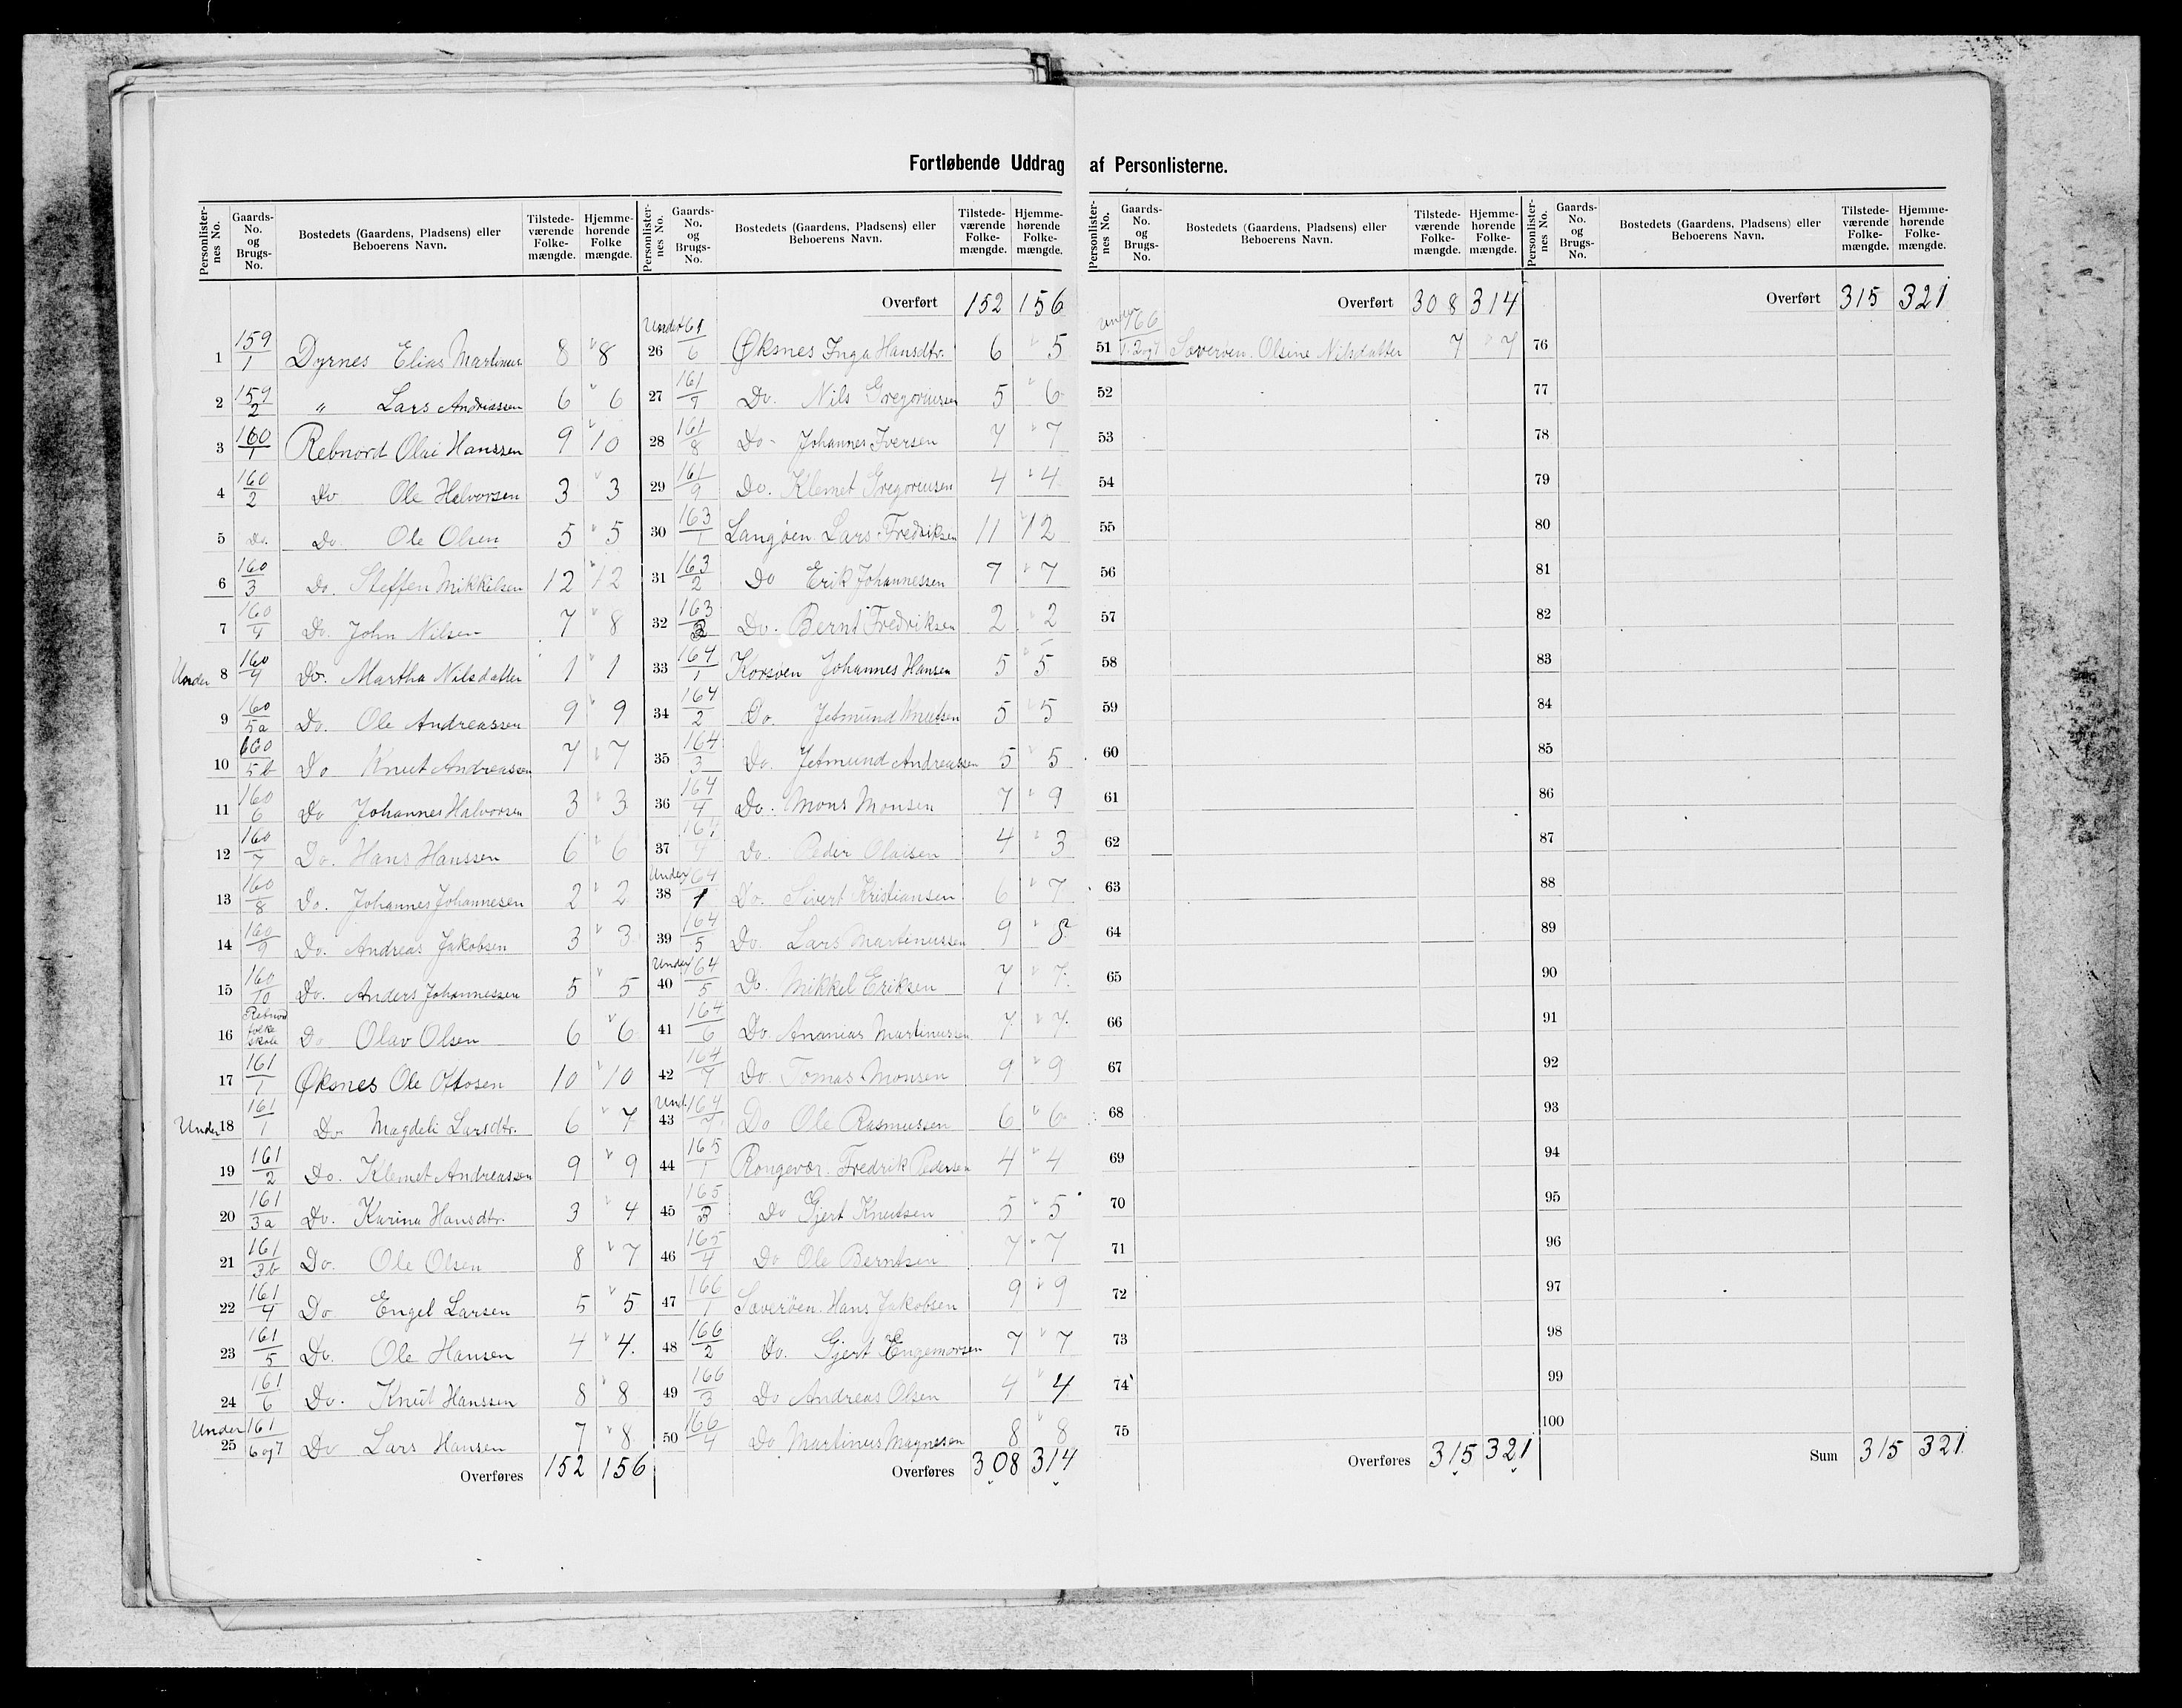 Fortløbende Uddrag af Personlisterne.
Personlisternes No. | Gaards-No. og Brugs-No. | Bostedets (Gaardens, Pladsens) eller Beboerens Navn. | Tilstedeværende Folkemængde. | Hjemmehørende Folke mængde.
1 159/1 Dyrnes Elias Martinus 8 8
2 159/2 " Lars Andreassen 6 6
3 160/1 Rebnord Olai Hanssen 9 10
4 160/2 Do Ole Halvorsen 3 3
5 Do. Do. Ole Olsen 5 5
6 160/3 Do. Steffen Mikkilsen 12 12
7 160/4 Do. John Nilsen 7 8
Under 8 160/4 Do. Martha Nilsdatter 1 1
9 160/5a Do. Ole Andreassen 9 9
10 160/5b Do Knut Andreassen 7 7
11 160/6 Do Johannes Halvorsen 3 3
12 160/7 Do. Hans Hanssen 6 6
13 160/8 Do. Johannes Johannesen 2 2
14 160/9 Do. Andreas Jakobsen 3 3
15 160/10 Do. Anders Johannessen 5 5
16 Rebnord folke skole Do Olav Olsen 6 6
17 161/1 Øksnes Ole Ottosen 10 10
Under 18 161/1 Do Magdeli Larsdtr. 6 7
19 161/2 Do. Klemet Andreassen 9 9
20 161/3a Do. Karina Hansdtr. 3 4
21 161/3b Do. Ole Olsen 8 7
22 161/4 Do Engel Larsen 5 5
23 161/5 Do. Ole Hansen 4 4.
24 161/6 Do. Knut Hanssen 8 8
Under 25 161/6 og 7 Do Lars Hansen 7 8
Overføres 152 156
Personlisternes No. | Gaards-No. og Brugs-No. | Bostedets (Gaardens, Pladsens) eller Beboerens Navn. | Tilstedeværende Folkemængde. | Hjemmehørende Folkemængde.
Overført 152 156
Under 26 161/6 Øksnes Inga Hansdtr. 6 5
27 161/7 Do. Nils Gregoriussen 5 6
28 161/8 Do Johannes Iversen 7 7
29 161/9 Do. Klemet Gregoriusen 4 4
30 163/1 Langøen Lars Fredriksen 11 12
31 163/2 Do Erik Johannessen 7 7
32 163/3 Do. Bernt Fredriksen 2 2
33 164/1 Korsøen Johannes Hansen 5 5
34 164/2 Do. Jetmund Knutsen 5 5
35 164/3 Do. Jetmund Andreassen 5 5
36 164/4 Do. Mons Monsen 7 9
37 164/4 Do. Peder Olaisen 4 3
Under 38 164/1 Do. Sivert Kristiansen 6 7
39 164/5 Do. Lars Martinussen 9 8
Under 40 164/5 Do. Mikkel Eriksen 7 7.
41 164/6 Do. Ananias Martinussen 7 7.
42 164/7 Do. Tomas Monsen 9 9
Und. 43 164/7 Do Ole Rasmussen 6 6
44 165/1 Rongevær. Fredrik Pedersen 4 4
45 165/3 Do Gjert Knutsen 5 5
46 165/4 Do Ole Berntsen 7 7
47 166/1 Sæverøen. Hans Jakobsen 9 9
48 166/2 Do. Gjert Engemorsen 7 7
49 166/3 Do Andreas Olsen 4 4
50 166/4 Do Martinus Magnesen 8 8
Overføres 308 314
Personlisternes No. | Gaards-No. og Brugs-No. | Bostedets (Gaardens, Pladsens) eller Beboerens Navn. | Tilstedeværende Folkemængde. | Hjemmehørende Folkemængde.
Overført 308 314
Under 51 166/1. 2 og 7 Sæverøen. Olsine Nilsdatter 7 7
52
53
54
55
56
57
58
59
60
61
62
63
64
65
66
67
68
69
70
71
72
73
74
75
Overføres 315 321
Personlisternes No. | Gaards-No. og Brugs-No. | Bostedets (Gaardens, Pladsens) eller Beboerens Navn. | Tilstedeværende Folkemængde. | Hjemmehørende Folkemængde.
Overført 315 321
76
77
78
79
80
81
82
83
84
85
86
87
88
89
90
91
92
93
94
95
96
97
98
99
100
Sum 315 321